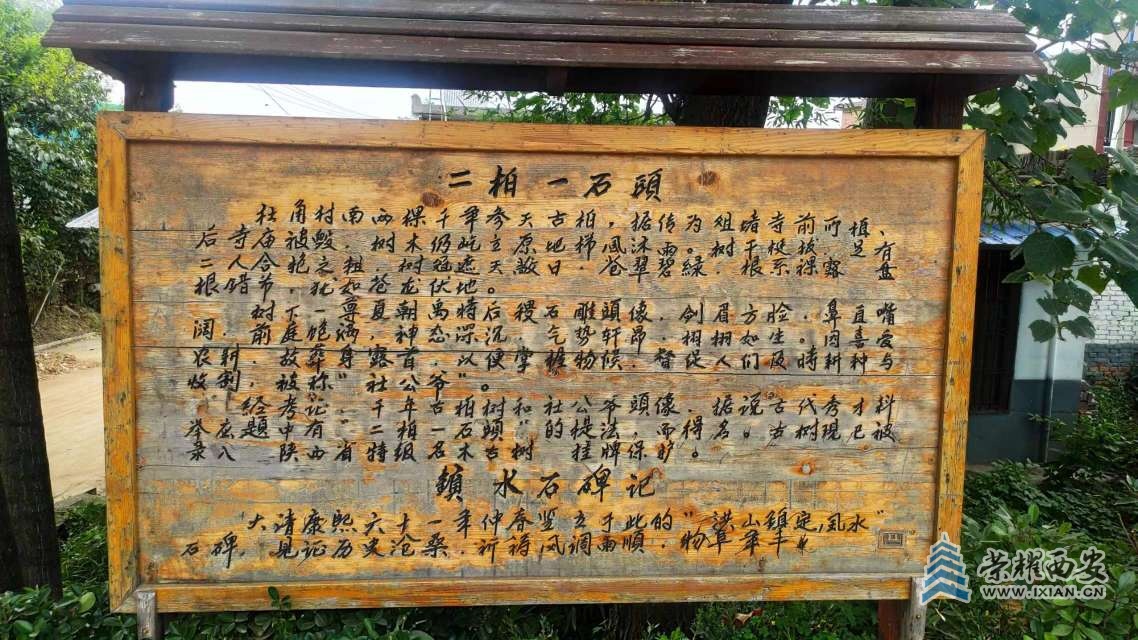 二柏一石頭
杜角村南两棵千年参天古柏，据传为祖堵寺前所植、
后寺庙被毁，树木仍屹立原地栉风沐雨。树干挺拔，足有
二人合抱之粗，树冠遮天蔽日，苍翠碧緑，根系裸露，盘
根错节，犹如苍龙伏地。
树下一尊夏朝禹時后稷石雕頭像，剑眉方脸，鼻直嘴
阔，前庭饱满，神态深沉，气势轩昂，栩栩如生。因喜爱
农耕，故葬身露首，以便掌握物候，督促人们及時耕种与
收割，被称“社公爷”。
经考证，千年古柏树和社公爷頭像，据说古代秀才科
举应题中有“二柏一石頭”的提法，而得名。古树现已被
录入 陕西省特级名木古树 挂牌保护。
鎮水石碑记
大清康熙六十一年仲春竖立于此的“洪山鎮定風水”
石碑，见证历史沧桑，祈祷风调雨順，物阜年丰
荣耀西安
WWW.IXIAN.CN